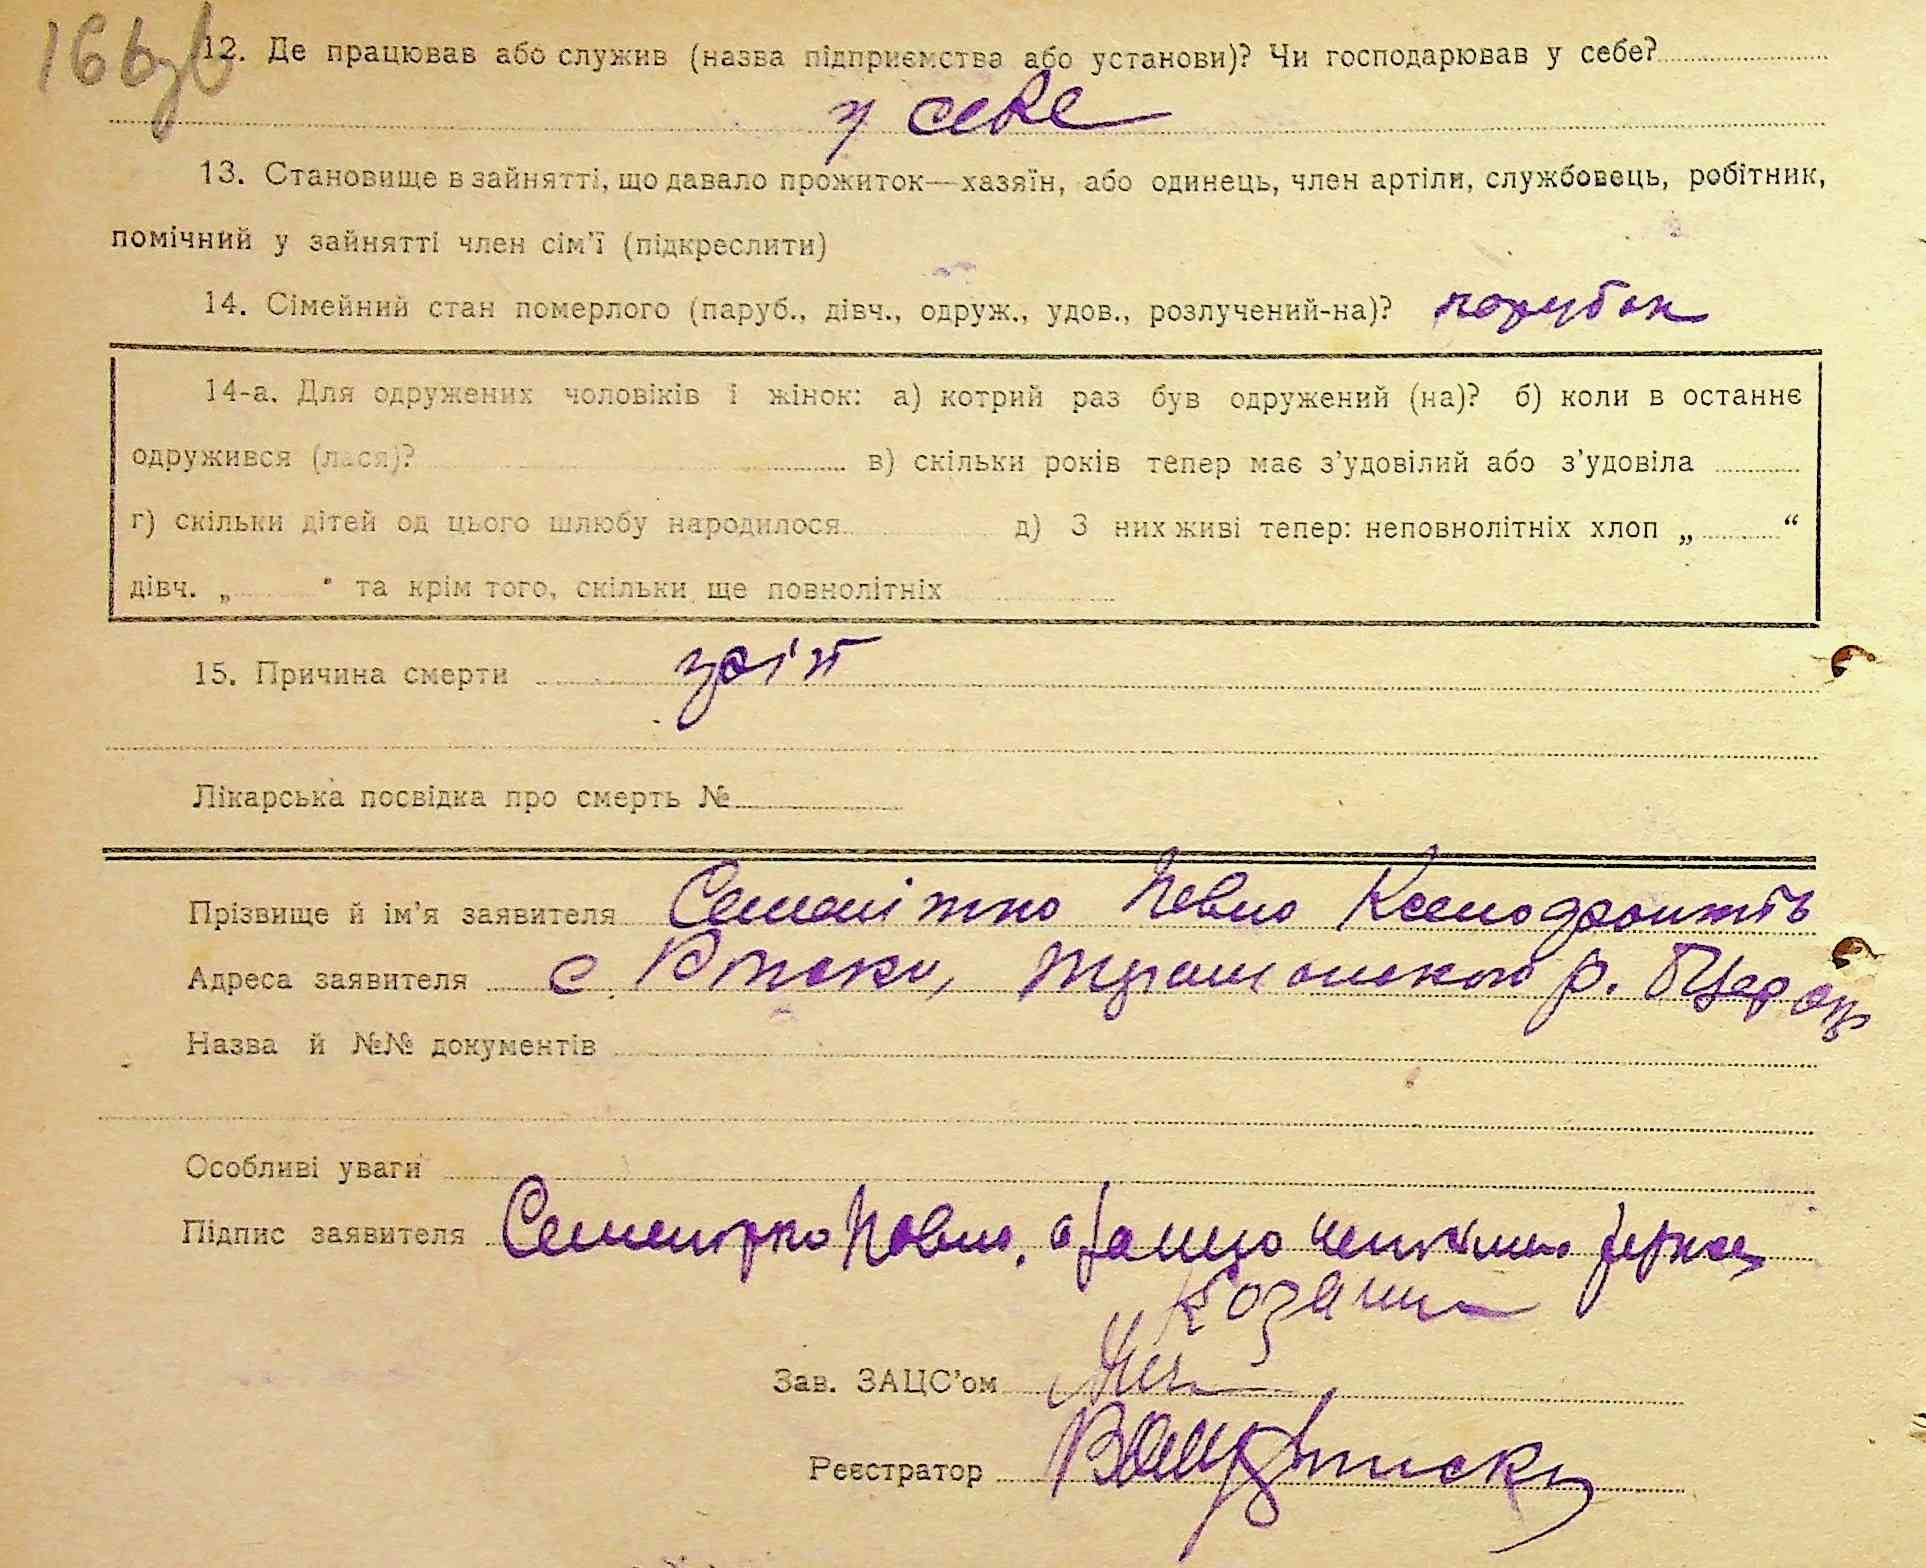 12. Де працював або служив (назва підприємства або установи)? Чи господарював у себе?
у себе
13. Становище в зайнятті, що давало прожиток—хазяїн, або одинець, член артіли, службовець, робітник,
помічний у зайнятті член сім'ї (підкреслити)
14. Сімейний стан померлого (паруб., дівч., одруж., удов., розлучений-на)? парубок
14-а. Для одружених чоловіків і жінок: а) котрий раз був одружений (на)? б) коли в останнє
одружився (лася)? в) скільки років тепер має з'удовілий або з'удовіла
г) скільки дітей од цього шлюбу народилося д) З них живі тепер: неповнолітніх хлоп „ “
дівч. „ “ та крім того, скільки ще повнолітніх
15. Причина смерти
Лікарська посвідка про смерть №
Прізвище й ім'я заявителя Павло
Адреса заявителя с. р.
Назва й №№ документів
Особливі уваги
Підпис заявителя Павло
Зав. ЗАЦС'ом
Реєстратор